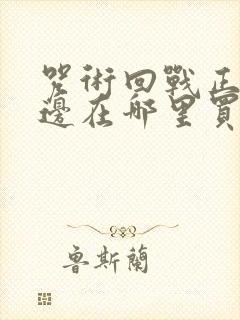 咒術回戰正
邊在哪里買
魯斯蘭